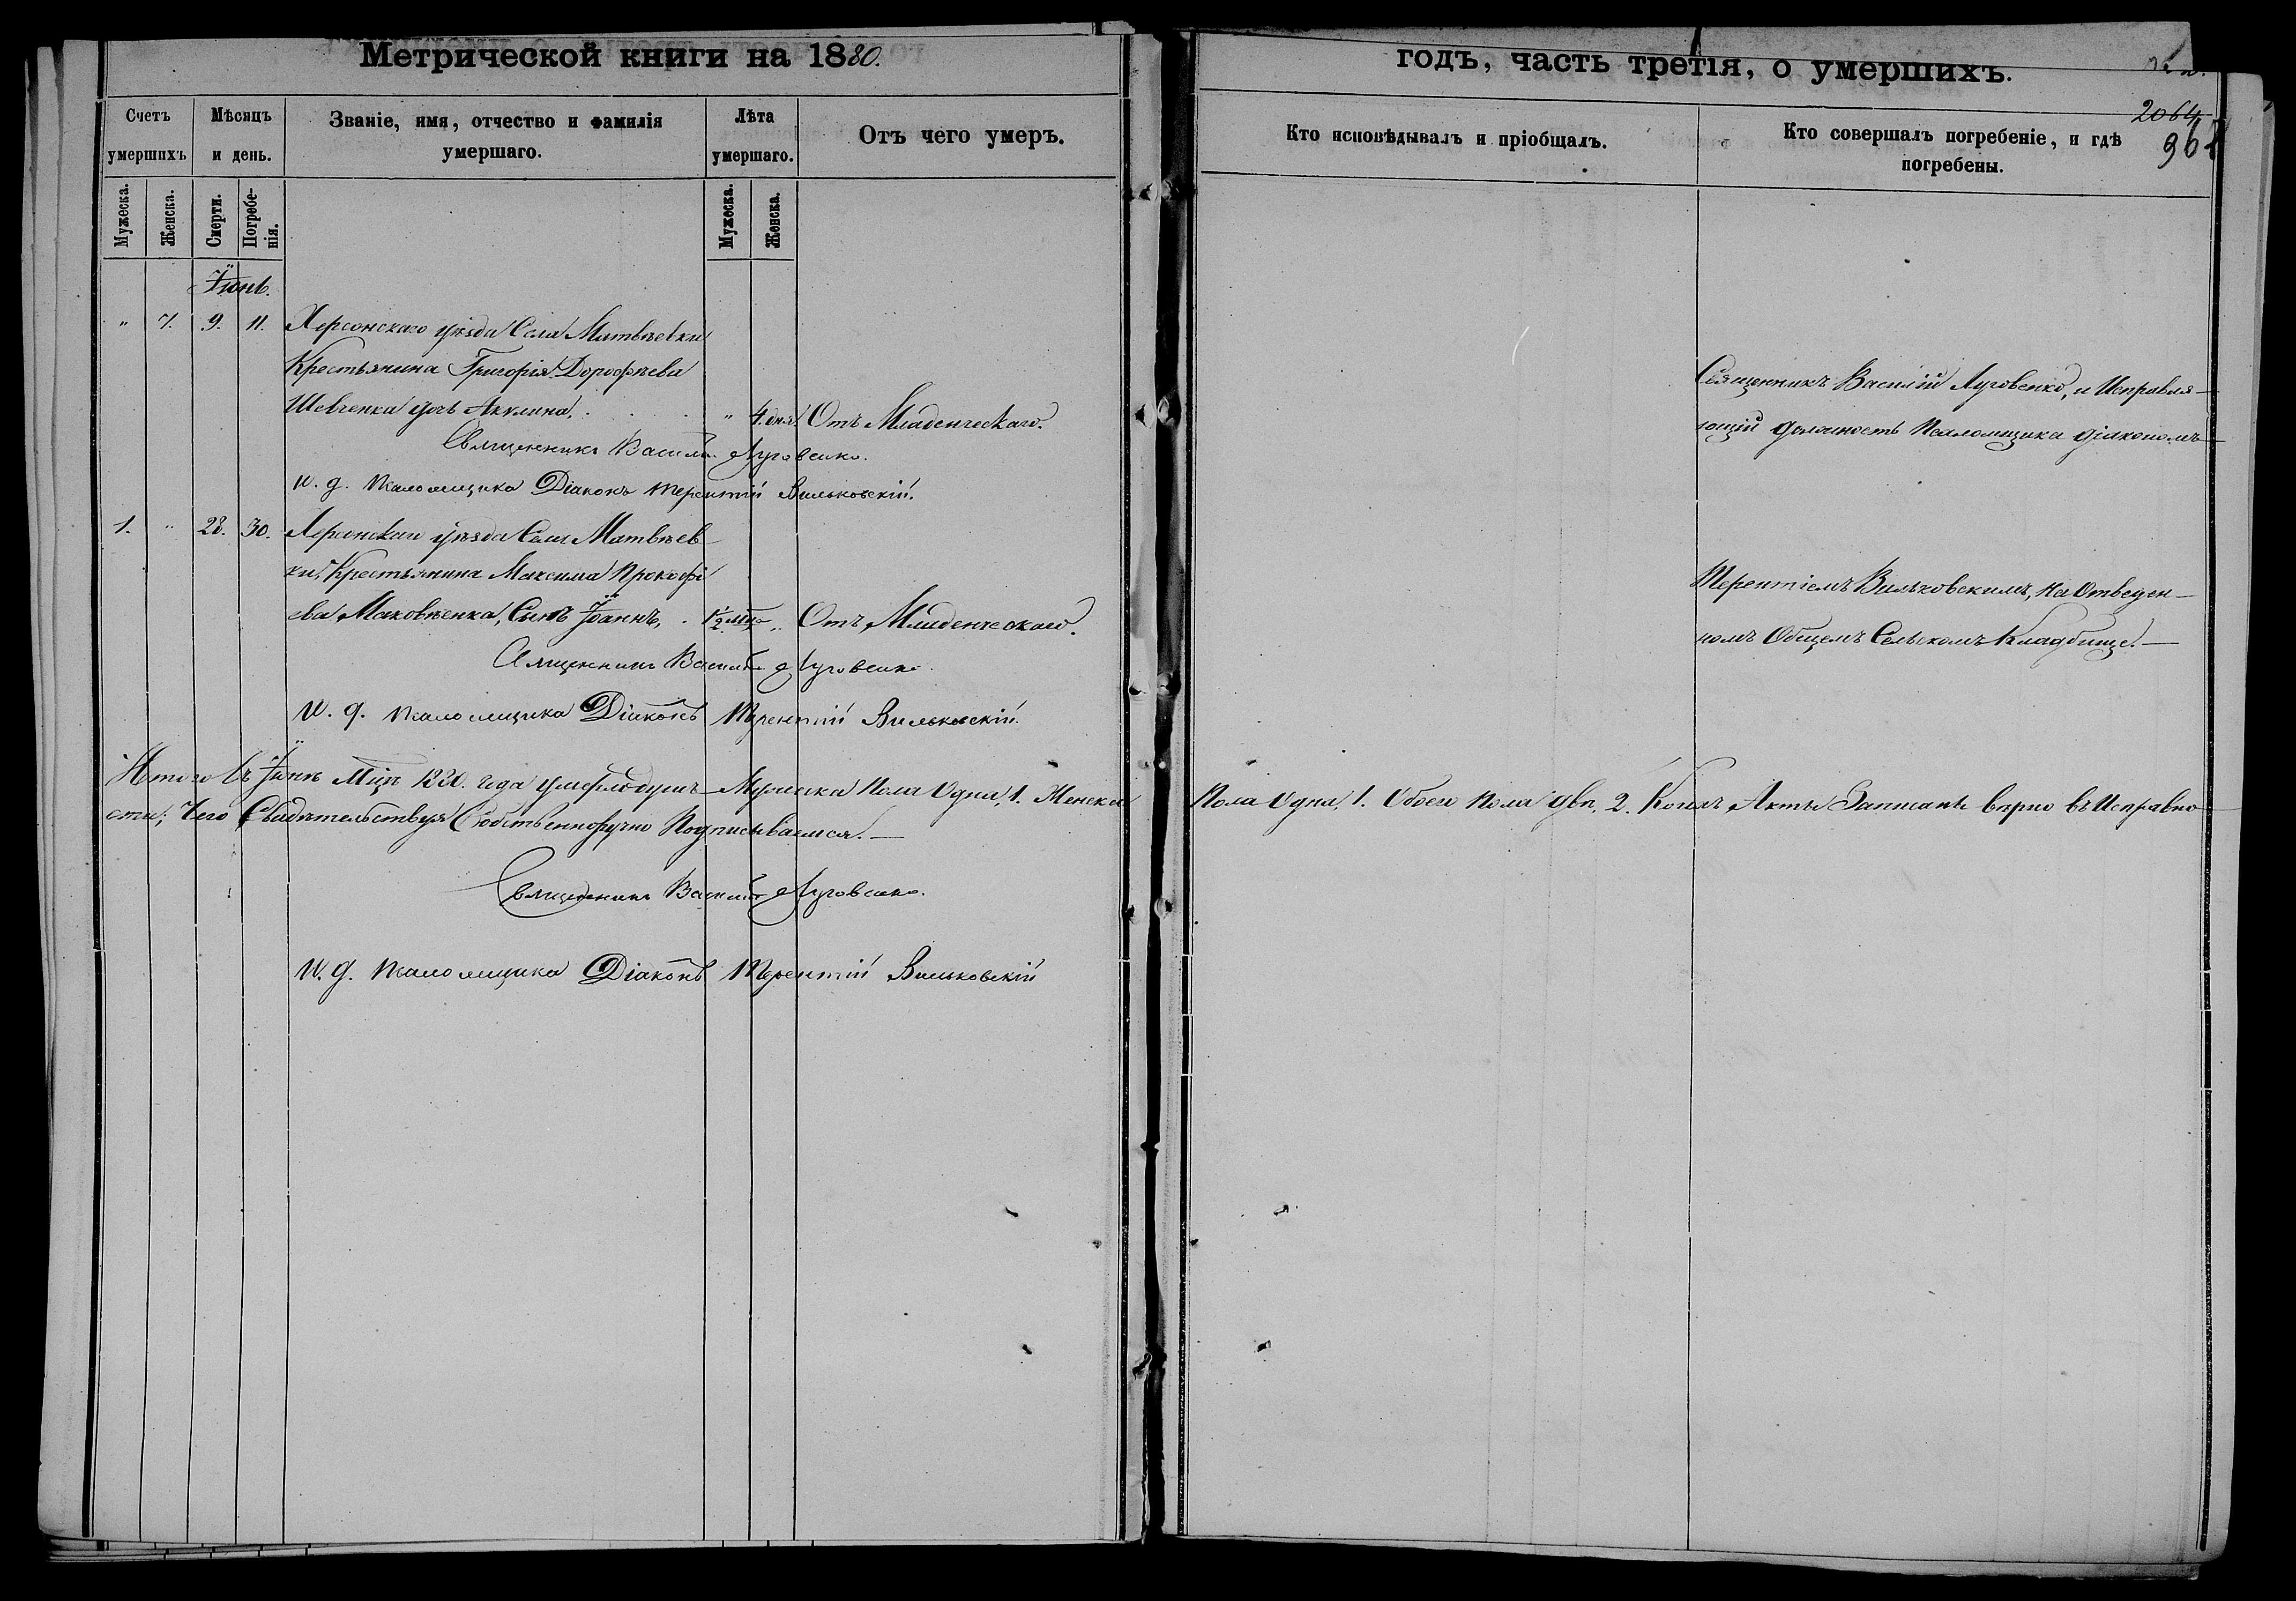 Метрической книги на 1880.
годъ, часть третія, о умершихъ.
2064
Счетъ умершихъ
Мѣсяцъ и день.
Званіе, имя, отчество и фамилія умершаго.
Лѣта умершаго.
Отъ чего умеръ.
Кто исповѣдывалъ и пріобщалъ.
Кто совершалъ погребеніе, и гдѣ погребены.
Мужеска.
Женска.
Смерти.
Погребе-нія.
Мужеска.
Женска.
Іюнь.
" 7. 9. 11. Херсонскаго уѣзда Села Матвѣевки
Крестьянина Григорія Дорофѣева
Шевченка дочь Акулина, " 4. дня. Отъ Младенческаго.
Священникъ Василій Луговенко.
И. д. псаломщика Діаконъ Терентій Вильковскій.
1. " 28. 30. Херсонскаго уѣзда Села Матвѣев
ки, Крестьянина Максима Прокофі
ева Маковѣенка, Сынъ Іоаннъ, 1/2 " Отъ Младенческаго.
Священникъ Василій Луговенко.
И. д. псаломщика Діаконъ Терентій Вильковскій.
Священникъ Василій Луговенко, и Исправля-
ющій должность Псаломщика діакономъ
Терентіемъ Вильковскимъ, на Отведен-
номъ Общемъ Сельскомъ Кладбище.
Итого въ Іюнѣ Мцѣ 1880. года умерло душъ Мужеска Пола Одна, 1. Женска Пола Одна, 1. Обоего Пола двѣ, 2. Актъ Записанъ вѣрно въ Исправно
сти; Чего Свидѣтельствуя Собственноручно Подписываемся.
Священникъ Василій Луговенко.
И. д. псаломщика Діаконъ Терентій Вильковскій